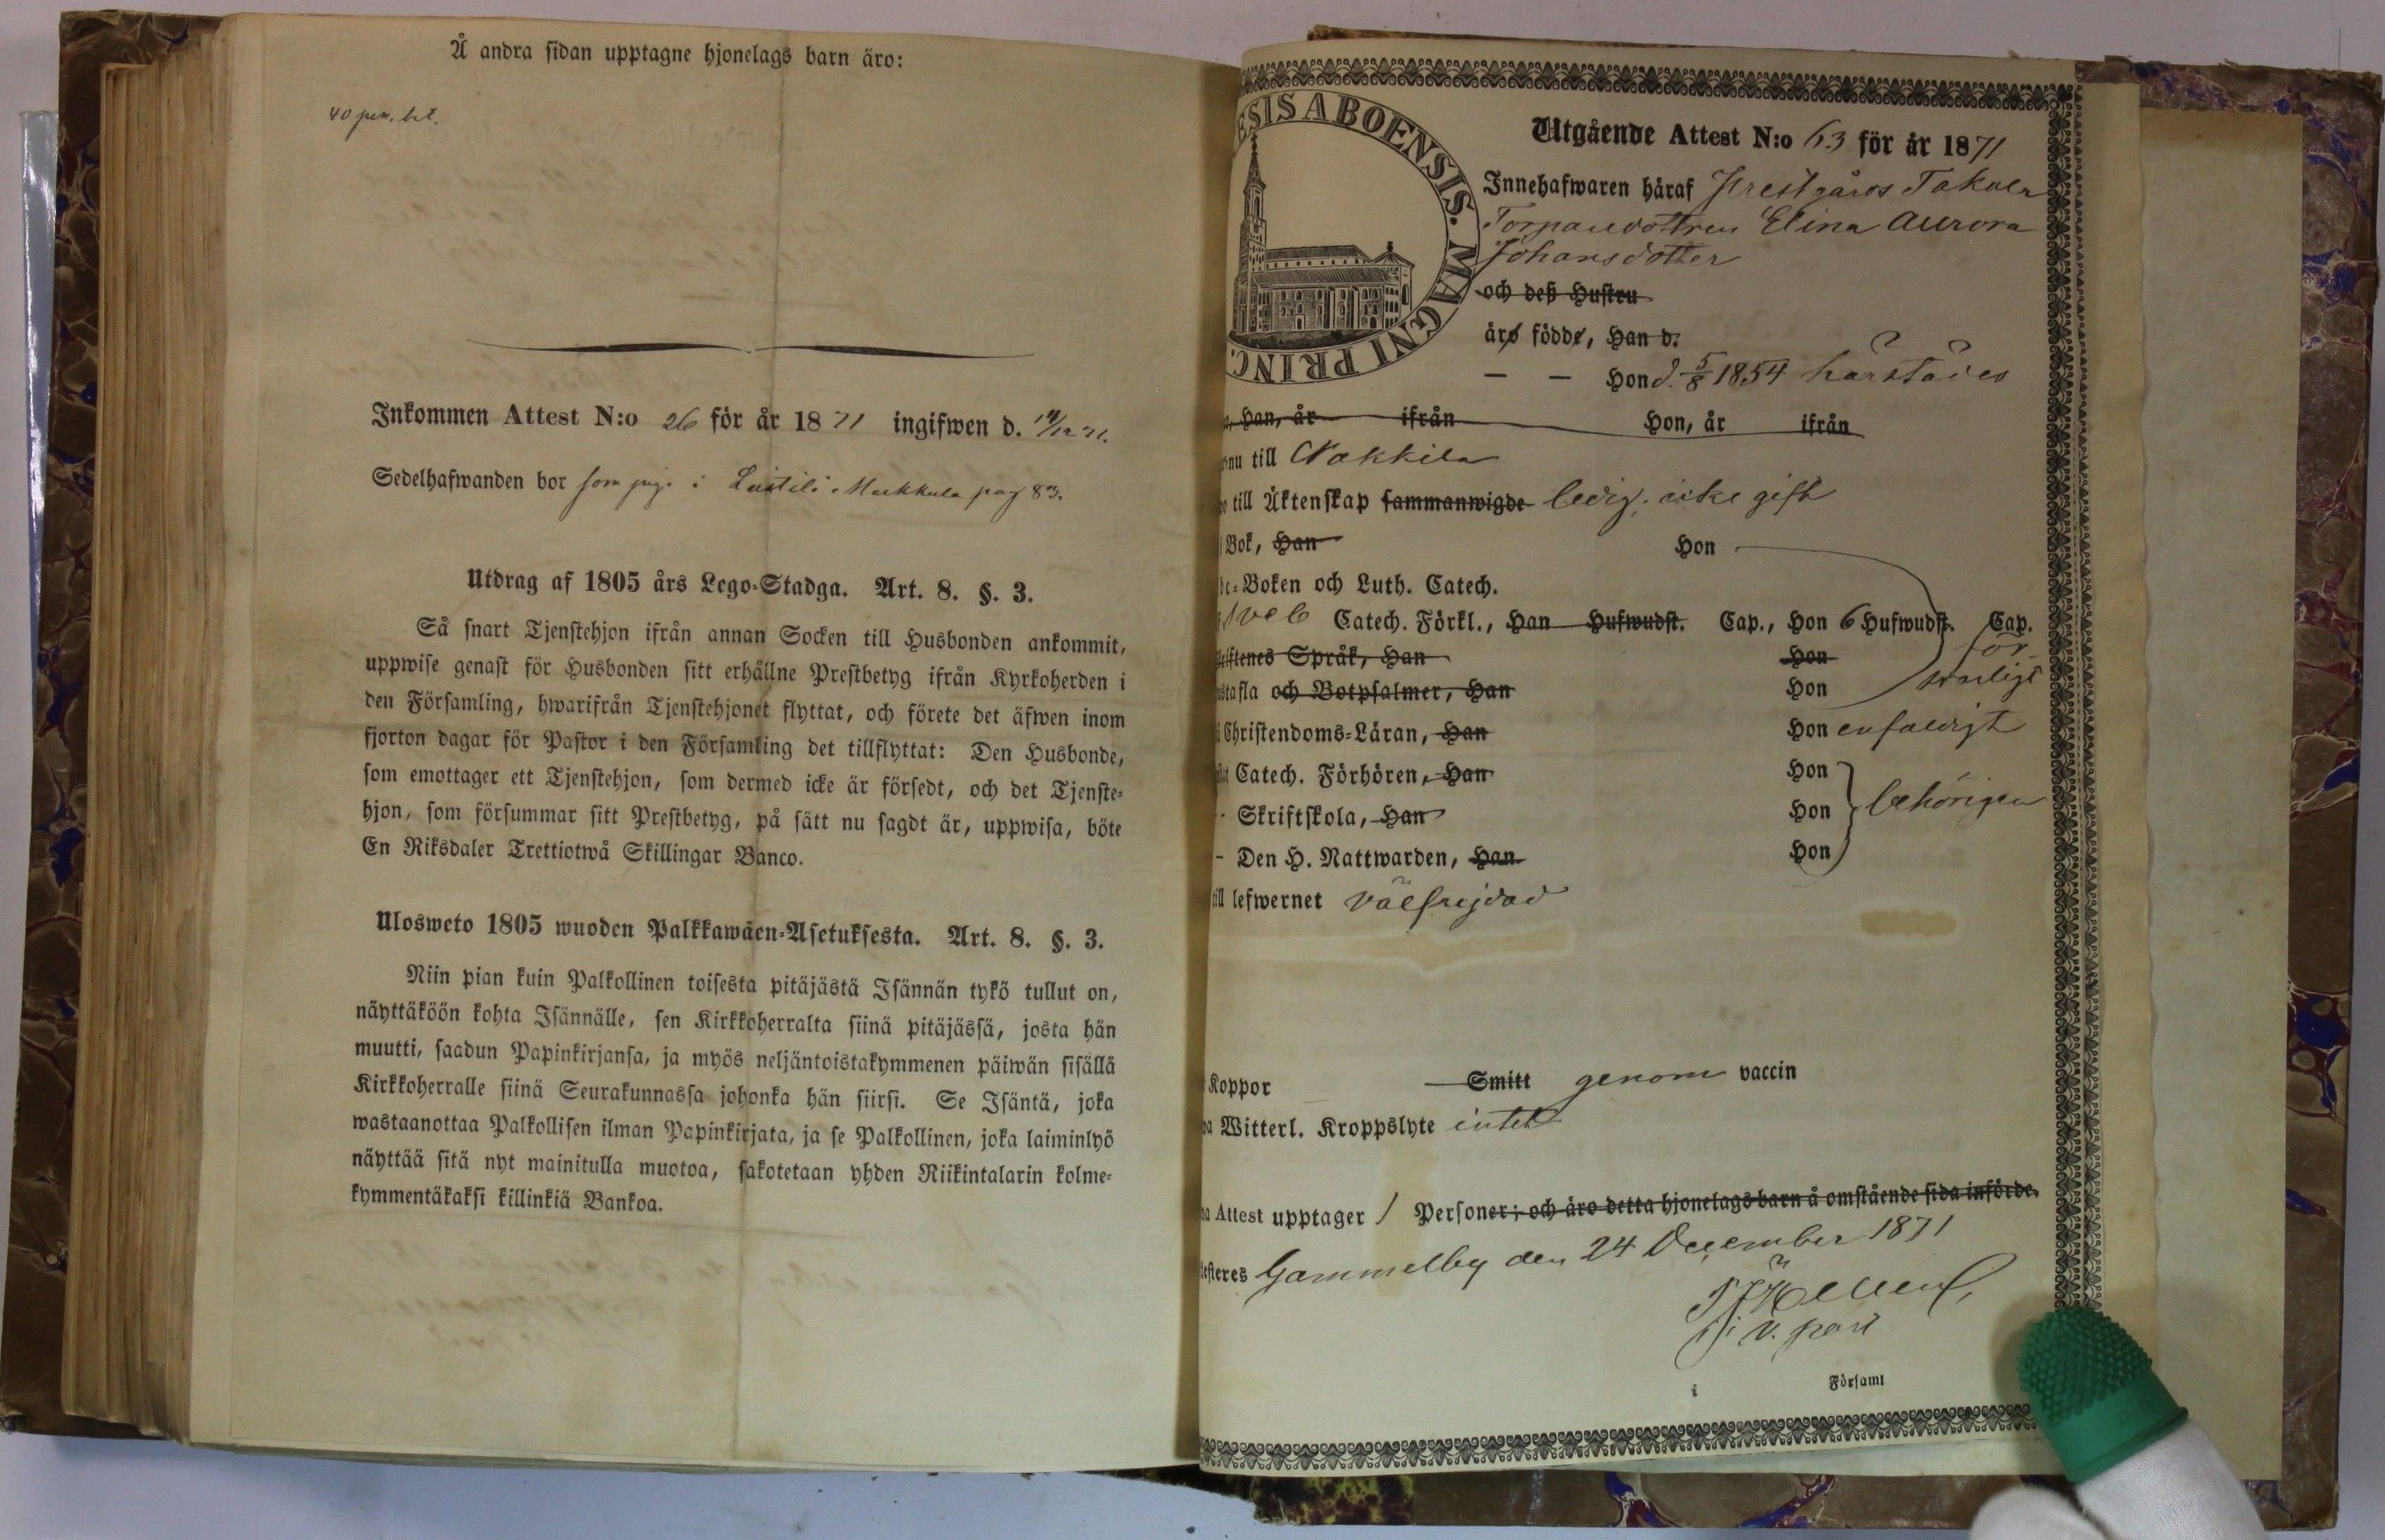 Å andra sidan upptagne hjonelags barn äro:
40 pen. bet.
Inkommen Attest N:o 26 för år 1871 ingifwen d. 14/12 71.
Sedelhafwanden bor som pig. i Luistili Markkula pag 83.
Utdrag af 1805 års Lego-Stadga. Art. 8. §. 3.
Så snart Tjenstehjon ifrån annan Socken till Husbonden ankommit,
uppwise genast för Husbonden sitt erhållne Prestbetyg ifrån Kyrkoherden i
den Församling, hwarifrån Tjenstehjonet flyttat, och förete det äfwen inom
fjorton dagar för Pastor i den Församling det tillflyttat: Den Husbonde,
som emottager ett Tjenstehjon, som dermed icke är försedt, och det Tjenste-
hjon, som försummar sitt Prestbetyg, på sätt nu sagdt är, uppwisa, böte
En Riksdaler Trettiotwå Skillingar Banco.
Ulosweto 1805 wuoden Palkkawäen-Asetuksesta. Art. 8. §. 3.
Niin pian kuin Palkollinen toisesta pitäjästä Isännän tykö tullut on,
näyttäköön kohta Isännälle, sen Kirkkoherralta siinä pitäjässä, josta hän
muutti, saadun Papinkirjansa, ja myös neljäntoistakymmenen päiwän sisällä
Kirkkoherralle siinä Seurakunnassa johonka hän siirsi. Se Isäntä, joka
wastaanottaa Palkollisen ilman Papinkirjata, ja se Palkollinen, joka laiminlyö
näyttää sitä nyt mainitulla muotoa, sakotetaan yhden Riikintalarin kolme-
kymmentäkaksi killinkiä Bankoa.
ESIS ABOENSIS. MAGNI PRINC.
Utgående Attest N:o 63 för år 1871
Innehafwaren häraf Prestgårds Takala
Torparedottren Elina Aurora
Johansdotter
och deß Hustru
äro födde, Han d.
— — Hon d. 5/8 1854 härstädes
Han, år ifrån Hon, år ifrån
nu till Nakkila
till Äktenskap sammanwigde ledig, icke gift
Bok, Han Hon
Boken och Luth. Catech.
Sveb Catech. Förkl., Han Hufwudst. Cap., Hon 6 Hufwudst. Cap.
Språk, Han Hon för-
tafla och Botpsalmer, Han Hon svarligt
Christendoms-Läran, Han Hon enfaldigt
Catech. Förhören, Han Hon
Skriftskola, Han Hon behörigen
– Den H. Nattwarden, Han Hon
till lefwernet välfrejdad
Koppor Smitt genom vaccin
Witterl. Kroppslyte intet
Attest upptager 1 Personer; och äro detta hjonelags barn å omstående sida införde.
Gammelby den 24 December 1871
v. past
i Församl